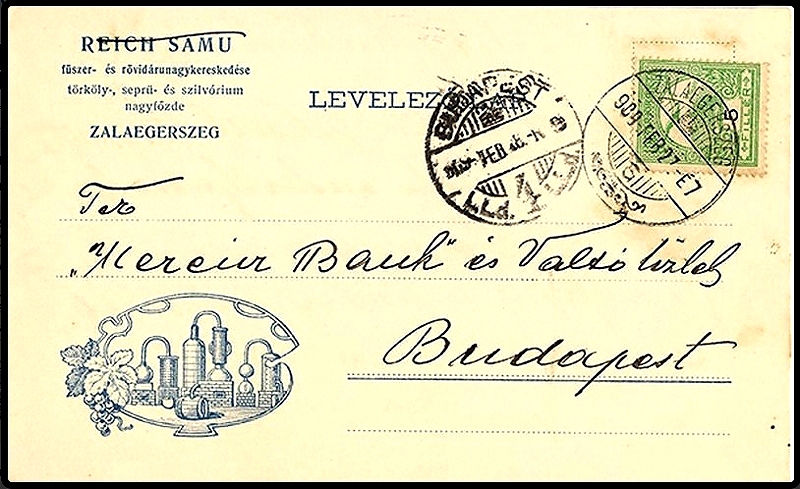 REICH SAMU
fűszer- és rövidárunagykereskedése
törköly-, seprű- és szilvórium
nagyfőzde
ZALAEGERSZEG
LEVELEZ
BUDAPEST
FEB
4
ZALAEGERSZEG
909 FEB 27 E7
5
FILLÉR
"Mercur Bank" és Váltó üzlet
Budapest